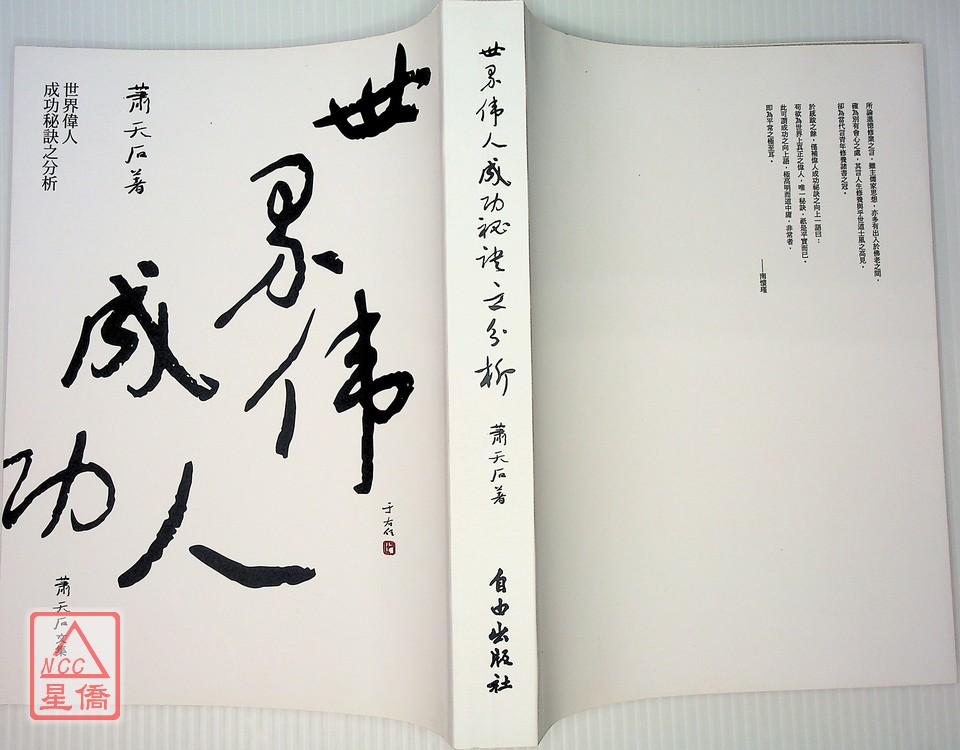 世界偉人
成功秘訣之分析
蕭天石著
世界伟人
成功
于右任
蕭天石文集
NCC
星僑
世界伟人成功秘诀之分析
蕭天石著
自由出版社
所論進德修業之言，雖主儒家思想，亦多有出入於佛老之間，
確為別有會心之處，其言人生修養與乎世道士風之高見，
卻為當代言青年修養諸書之冠。
於感歎之餘，僅補偉人成功秘訣之向上一語曰：
苟欲為世界上真正之偉人，唯一秘訣，祇是平實而已。
此可謂成功之向上語，極高明而道中庸，非常者，
即為平常之極至耳。
——南懷瑾